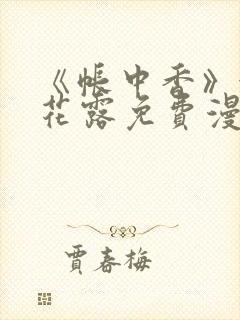 《帐中香》
花露免费漫
贾春梅